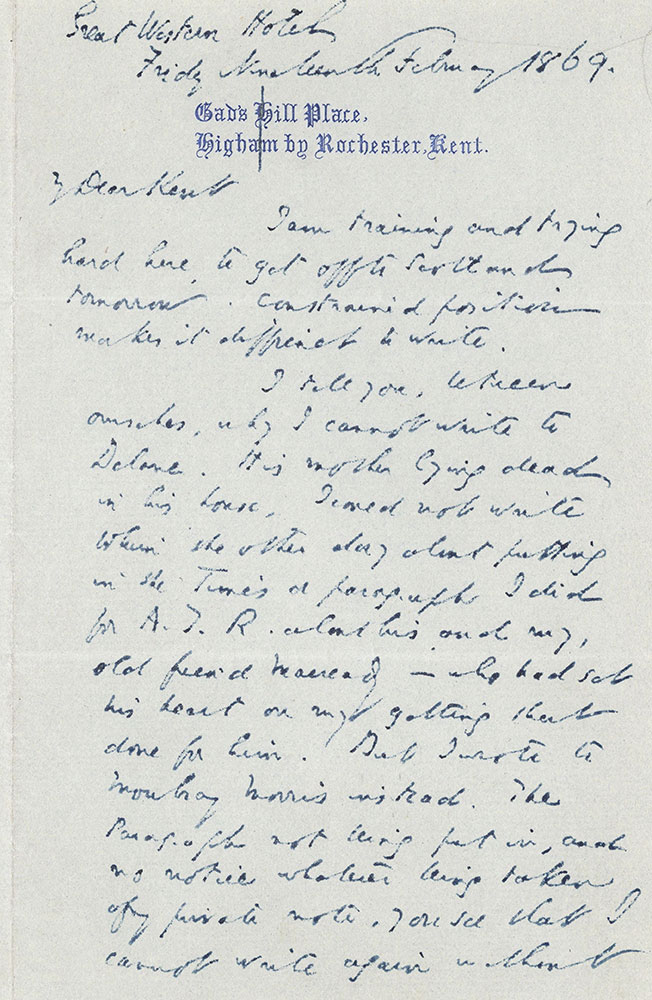 Great Western Hotel
Friday Nineteenth February 1869.
Gad's Hill Place,
Higham by Rochester, Kent.
My Dear Kent
I am training and trying
hard here, to get off to Scotland
tomorrow. Constrained position
makes it difficult to write.
I tell you, between
ourselves, why I cannot write to
Delane. His mother lying dead
in his house, I could not write
to him the other day about putting
in the Times a paragraph I did
for A. J. R. about his and my
old friend Macready — who had set
his heart on my getting that
done for him. But I wrote to
Mowbray Morris instead. The
Paragraph not being put in, and
no notice whatever being taken
of my private note, you see that I
cannot write again without